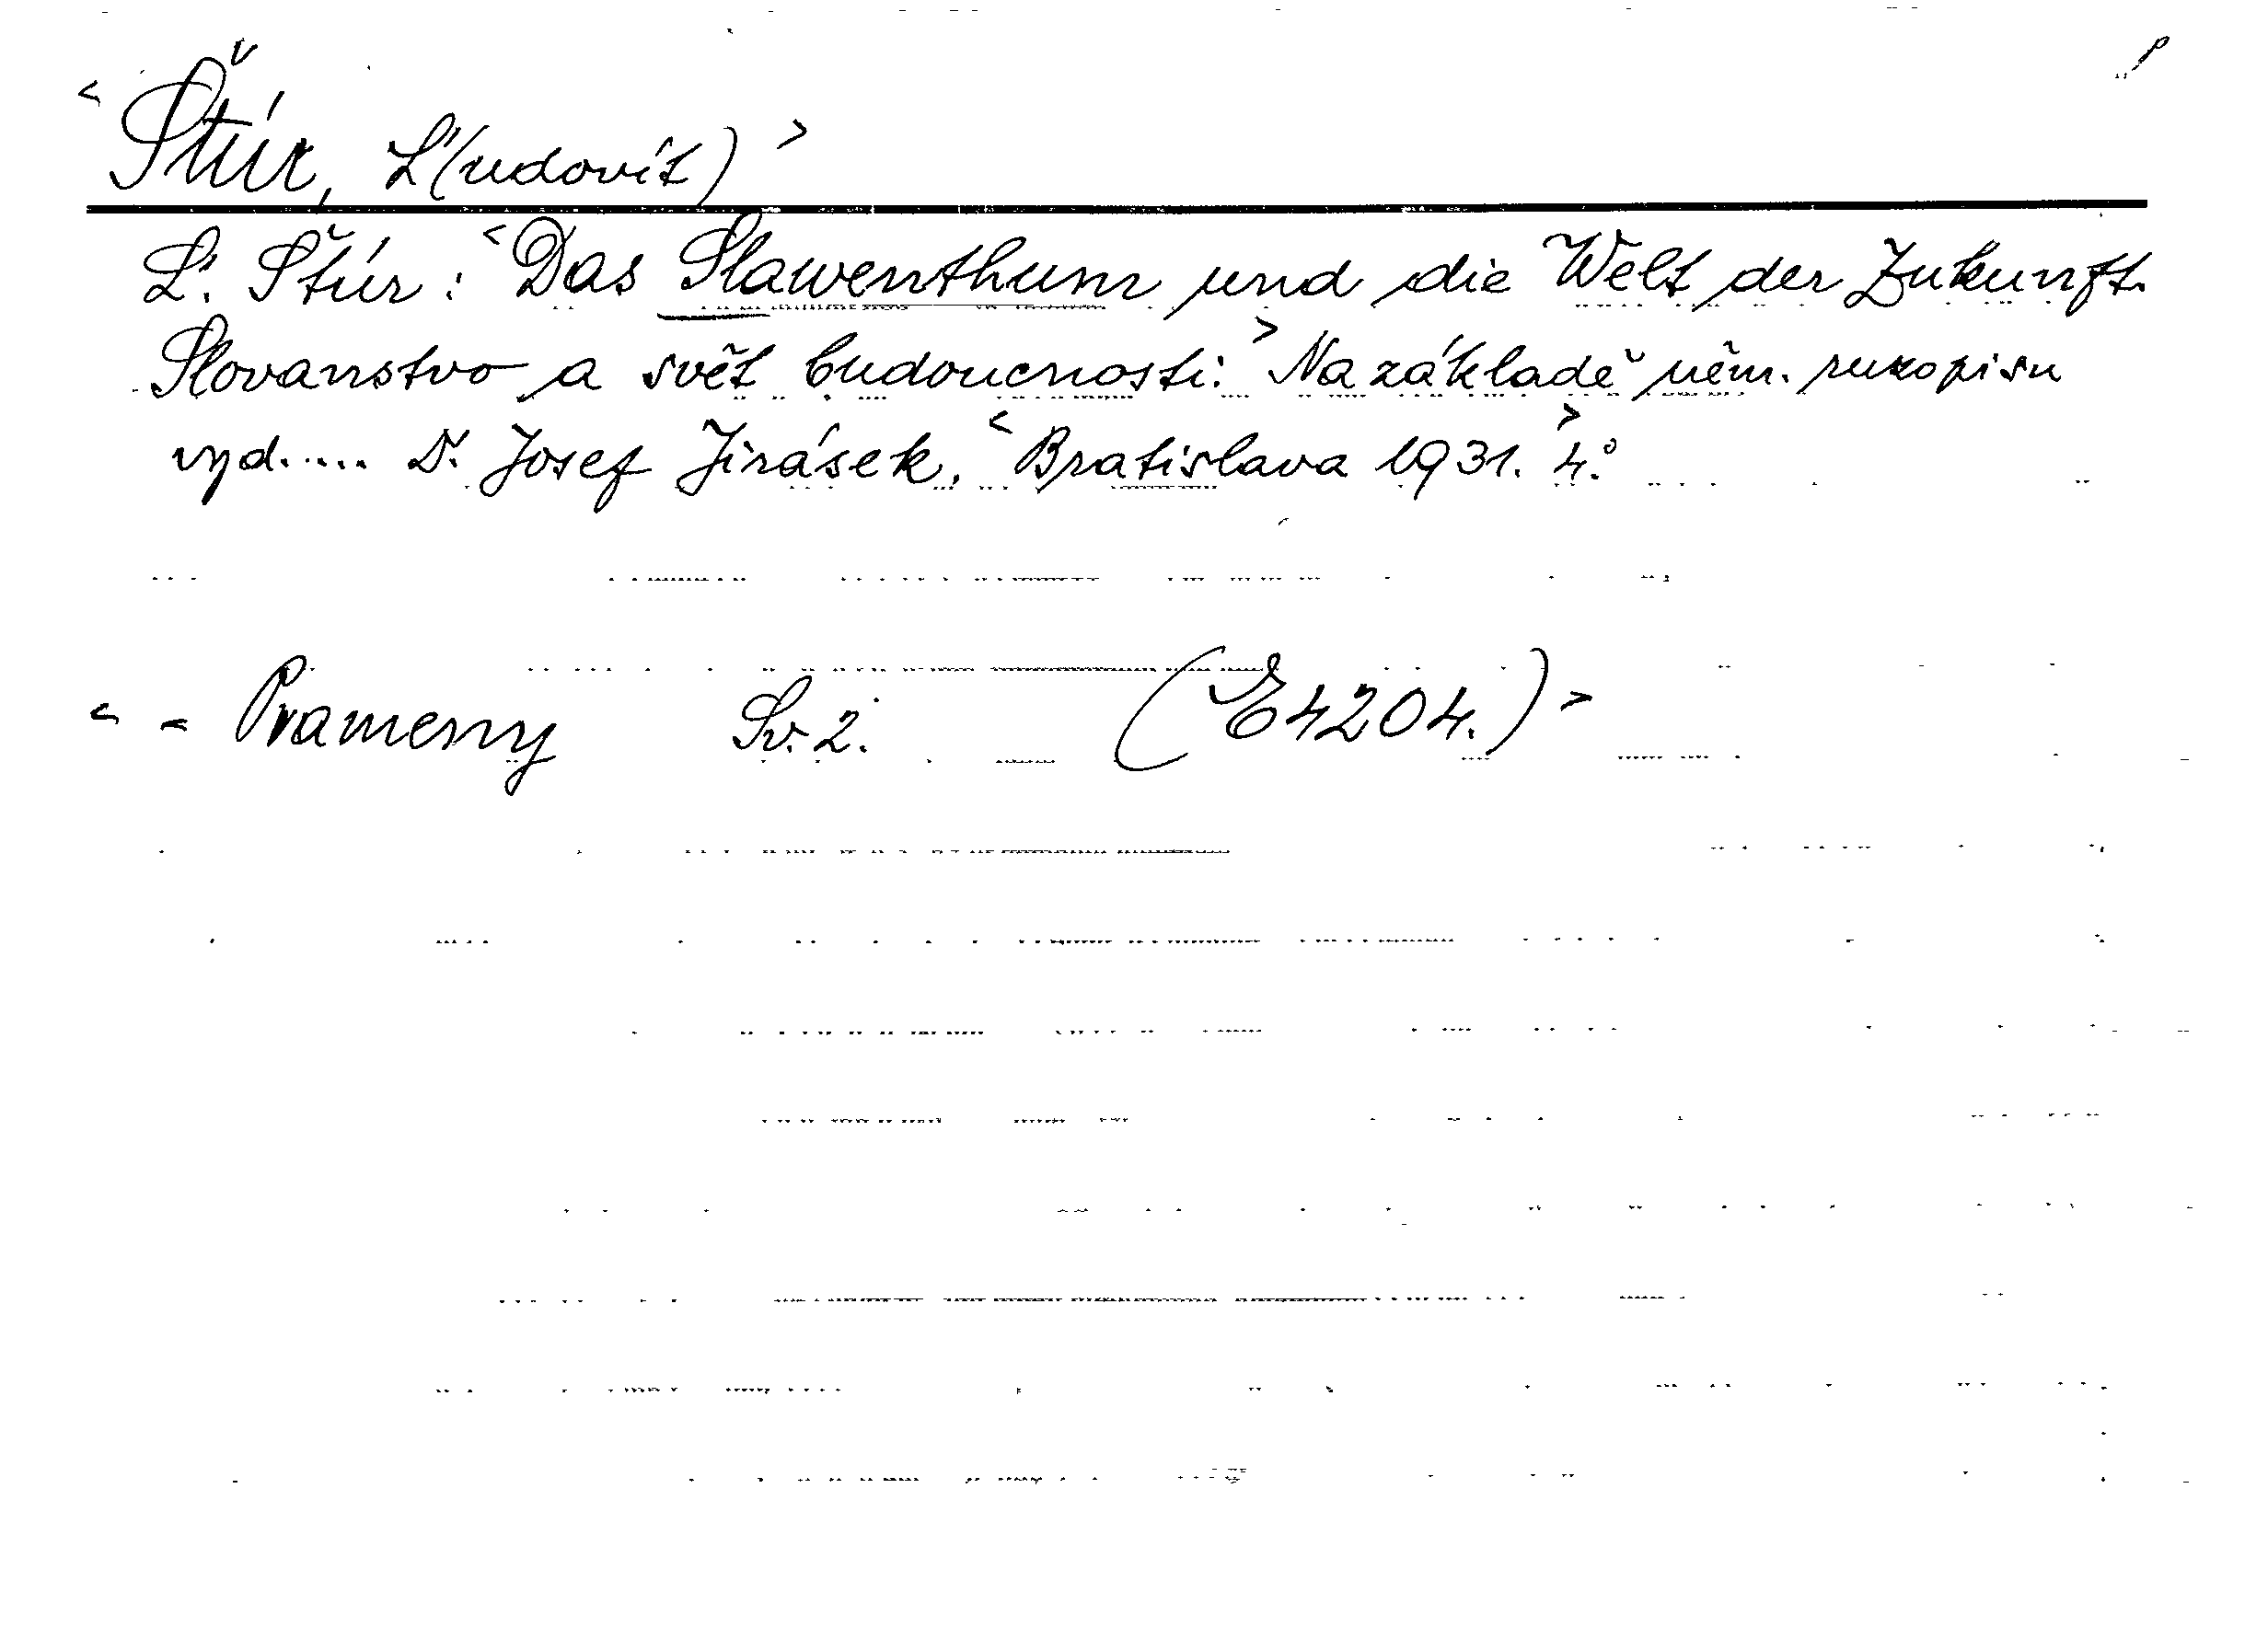 < Štúr, Ľ(udovít) >
Ľ. Štúr: < Das Slawenthum und die Welt der Zukunft.
Slovanstvo a svět budoucnosti. > Na základě něm. rukopisu
vyd. .... Dr. Josef Jirásek. < Bratislava 1931. > 4.°
< - Prameny Sv. 2. (E4204.) >